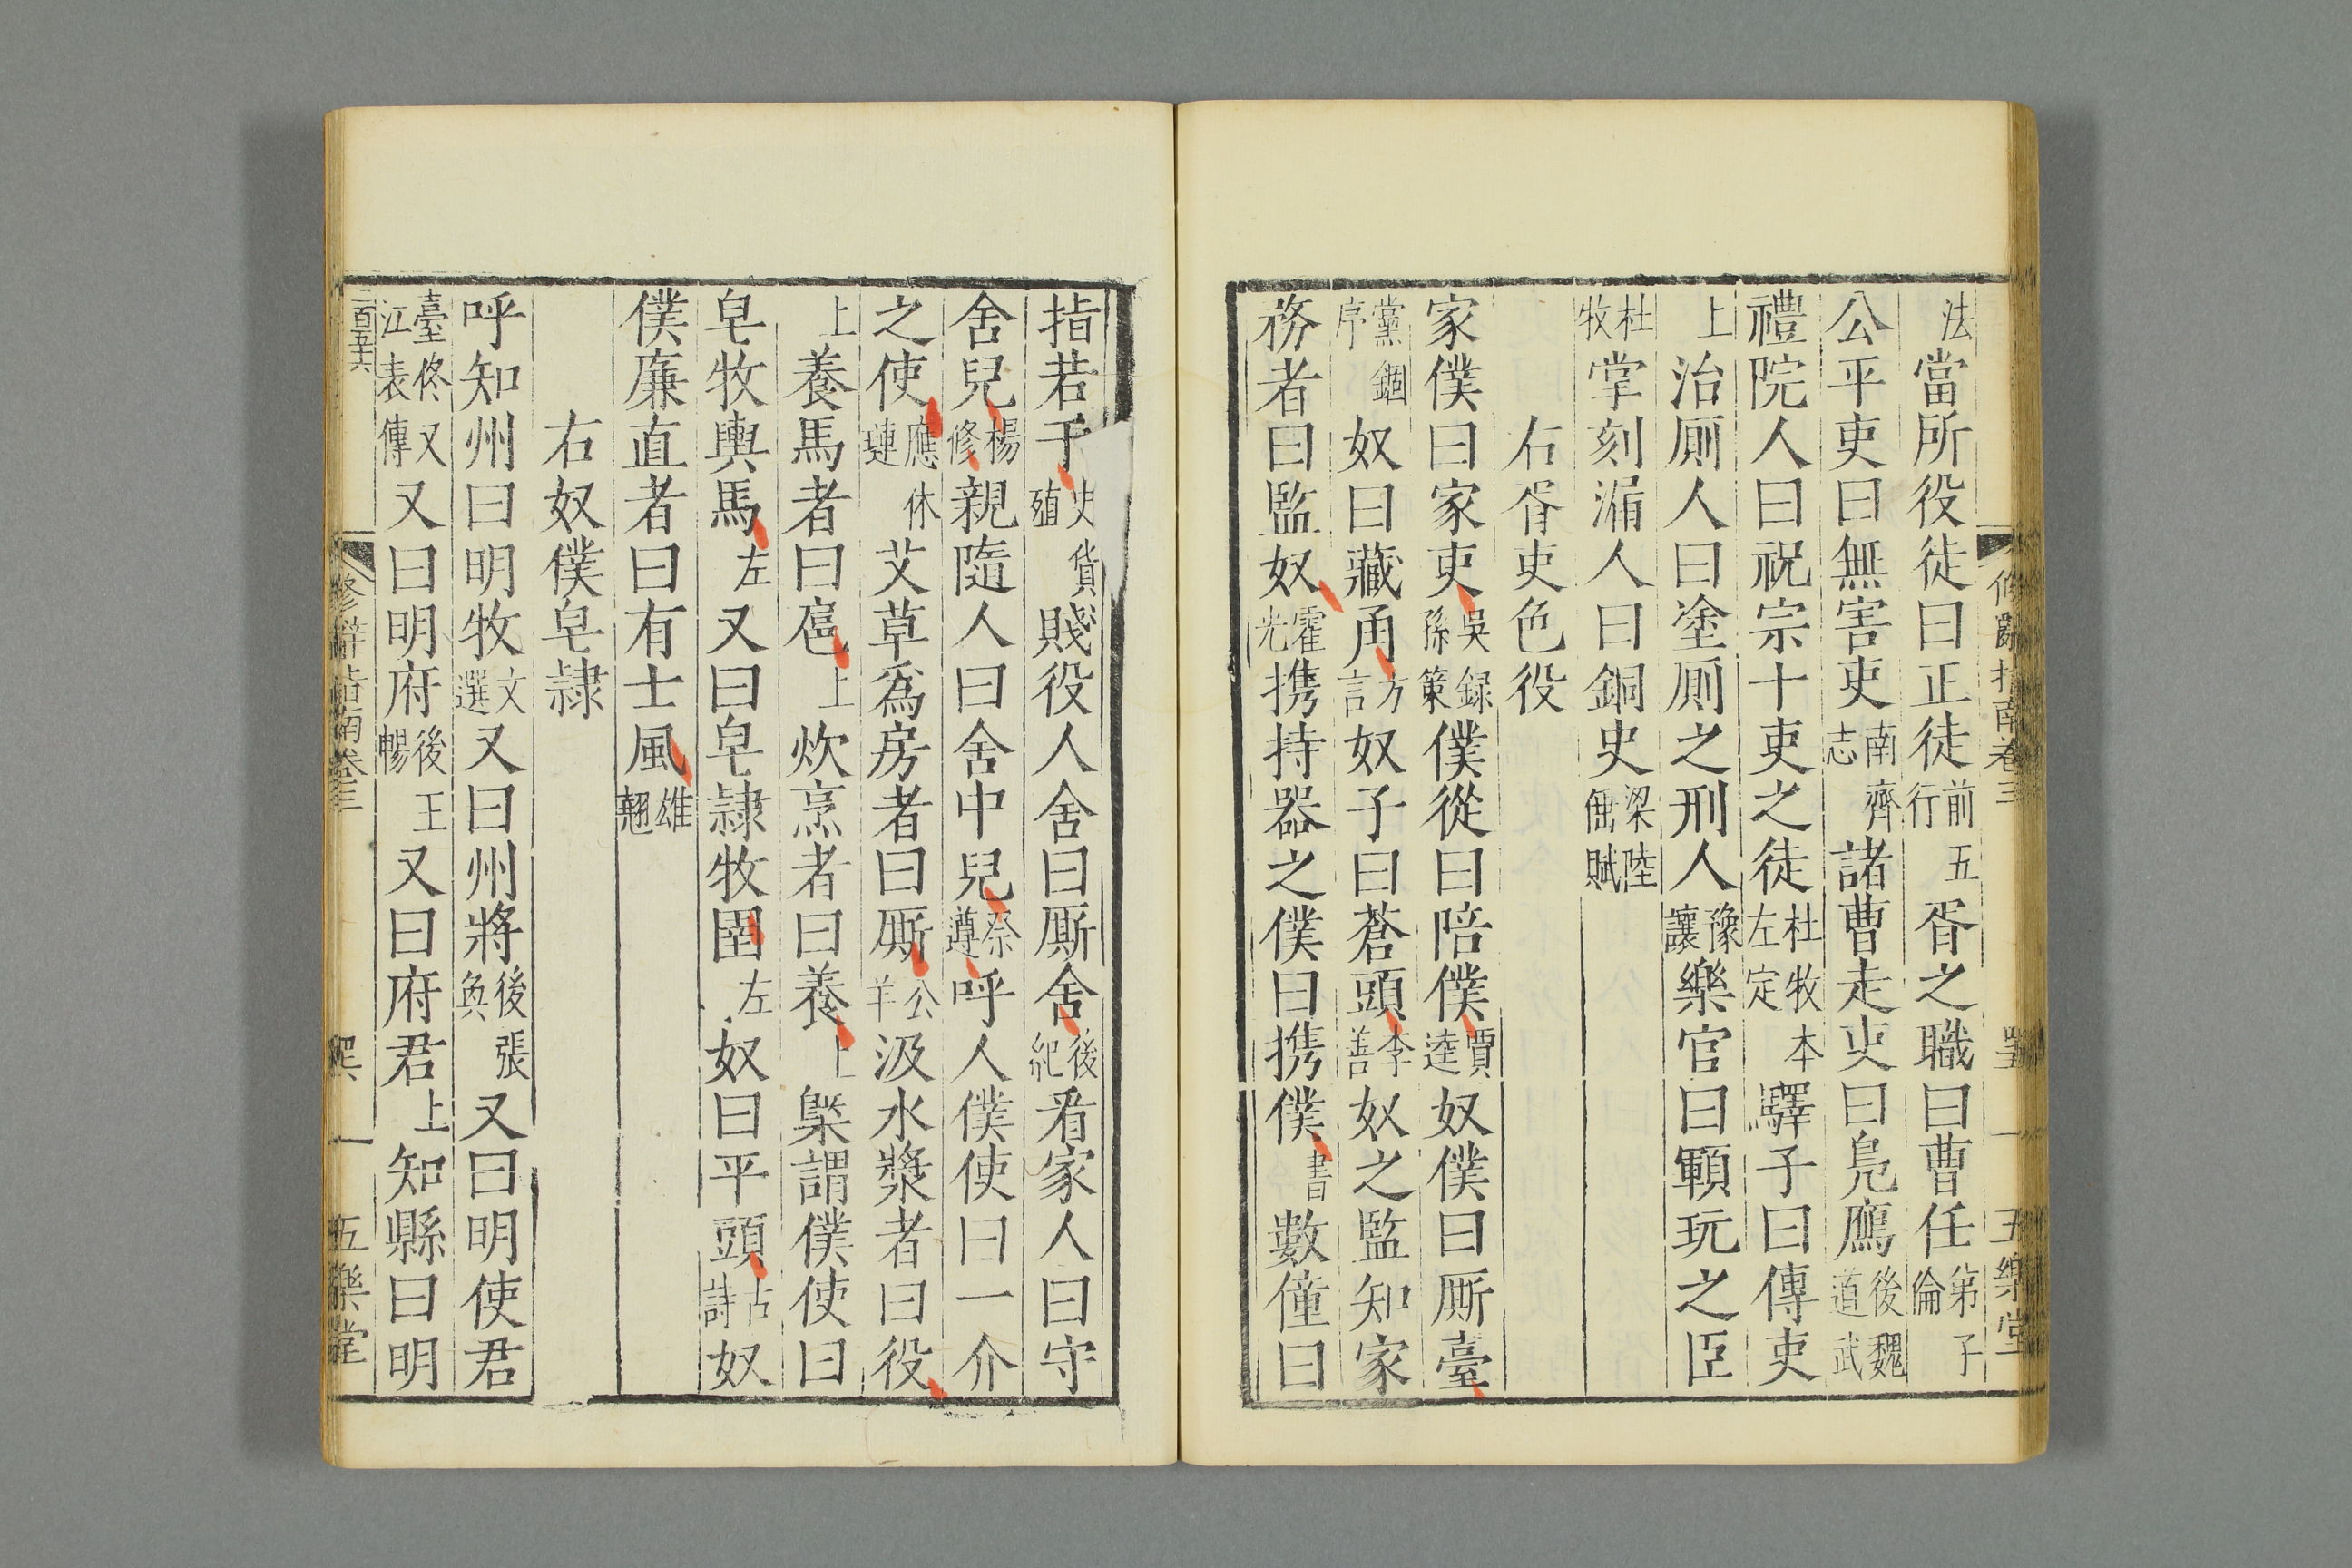 修辭指南卷三 五樂堂
法當所役徒曰正徒前五行胥之職曰曹任第子倫
公平吏曰無害吏南齊志諸曹走吏曰鳧鷹後魏道武
禮院人曰祝宗十吏之徒杜牧本左定驛子曰傳吏
上治厠人曰塗厠之刑人豫讓樂官曰顐玩之臣
杜牧掌刻漏人曰銅史梁陸倕賦
右胥吏色役
家僕曰家吏吳録孫策僕從曰陪僕賈逵奴僕曰厮臺
黨錮序奴曰藏甬方言奴子曰蒼頭李善奴之監知家
務者曰監奴霍光携持器之僕曰携僕書數僮曰
指若干史貨殖賤役人舍曰厮舍後紀看家人曰守
舍兒楊修親隨人曰舍中兒祭遵呼人僕使曰一介
之使應休璉艾草爲房者曰厮公羊汲水漿者曰役
上養馬者曰扈上炊烹者曰養上槩謂僕使曰
皂牧輿馬左又曰皂隷牧圉左奴曰平頭古詩奴
僕廉直者曰有士風雄翹
右奴僕皂隷
呼知州曰明牧文選又曰州將後張奐又曰明使君
臺佟又江表傳又曰明府後王暢又曰府君上知縣曰明
二百五十六 修辭指南卷三 五樂堂